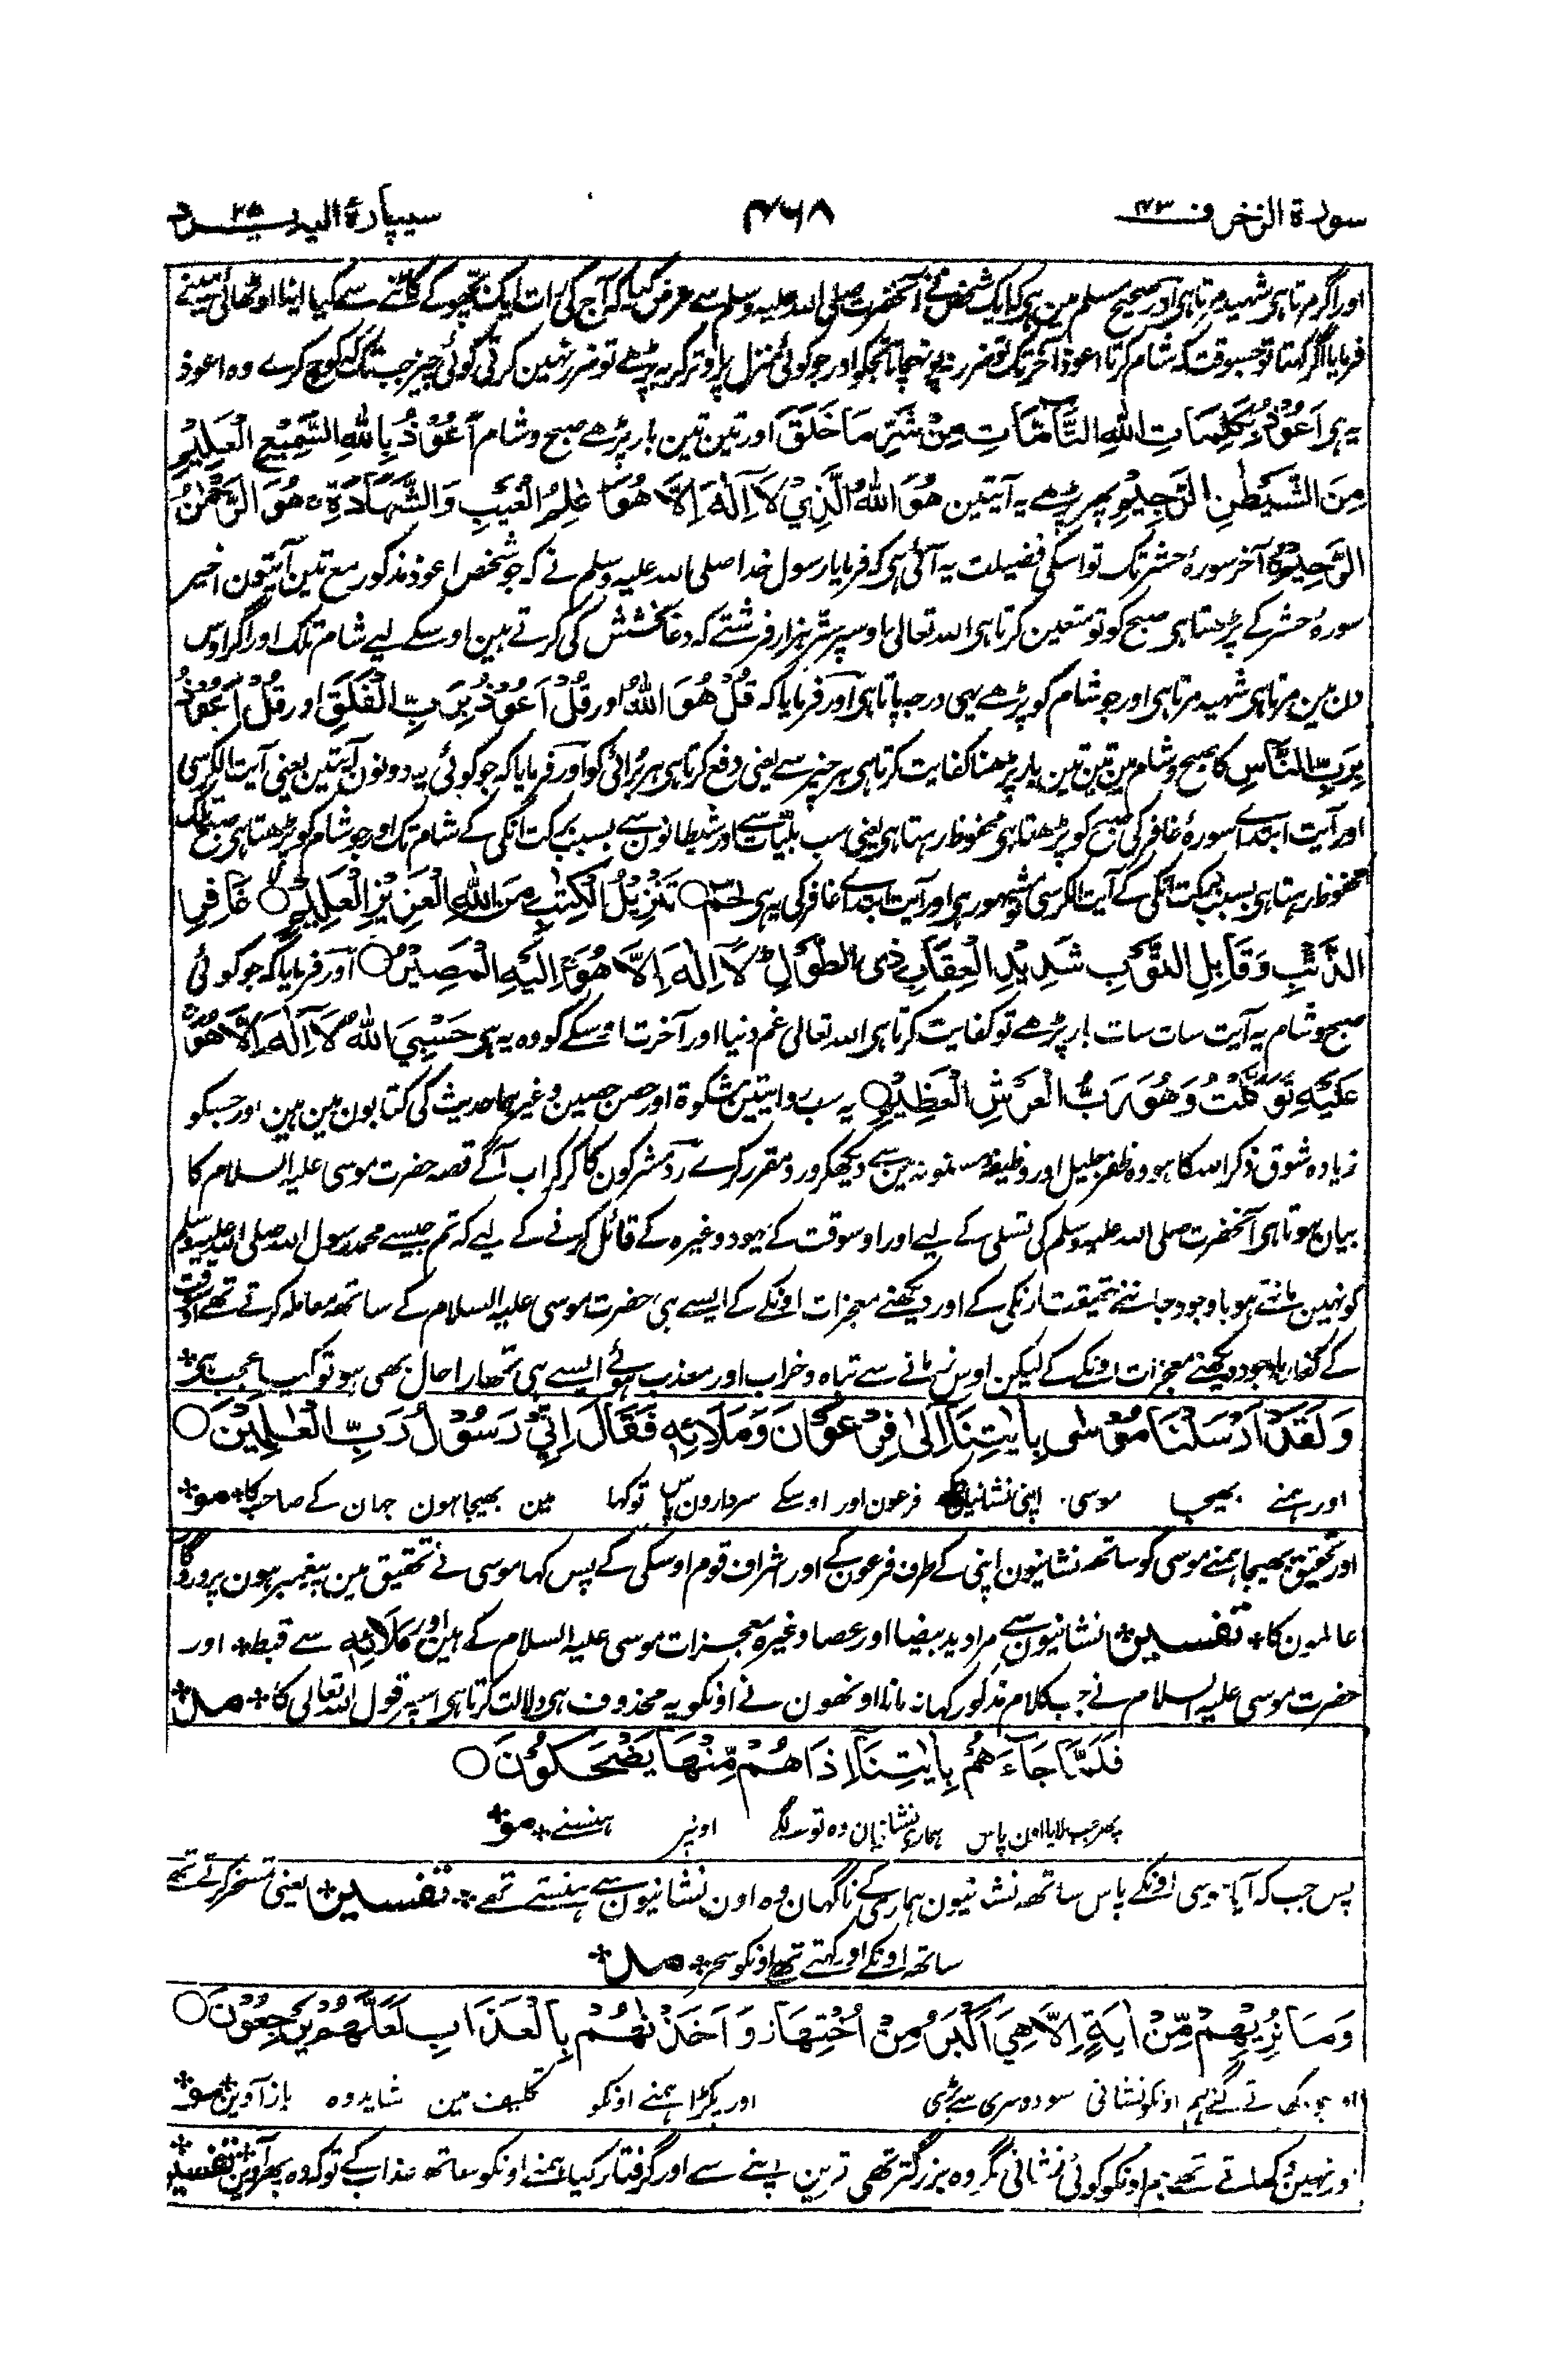 سورۃ الزخرف ۴۳
۴۶۸
سیپارۂ الیہ یرد ۲۵
اور اگر مرتا ہی شہید مرتا ہی اور صحیح مسلم مین ہی کہ ایک شخص نے آنحضرت صلی اللہ علیہ وسلم سے عرض کیا کہ آج کی رات ایک بچھو کے کاٹنے سے کیا ایذا اوٹھائی مینے
فرمایا اگر کہتا تو جسوقت کہ شام کرتا اعوذ آخر تک تو ضرر نہ پہونچاتا تجکو اور جو کوئی منزل پر اوتر کر یہ پڑھے تو ضرر نہین کرتی کوئی چیز جب تک کہ کوچ کرے وہ اعوذ
یہ ہی اَعُوْذُ بِکَلِمَاتِ اللہِ التَّآمَّاتِ مِنْ شَرِّ مَا خَلَقَ اور تین تین بار پڑھے صبح و شام اَعُوْذُ بِاللہِ السَّمِیْعِ الْعَلِیْمِ
مِنَ الشَّیْطٰنِ الرَّجِیْمِ پھر پڑھے یہ آیتین ھُوَ اللہُ الَّذِیْ لَآ اِلٰہَ اِلَّا ھُوَ عٰلِمُ الْغَیْبِ وَالشَّھَادَۃِ ھُوَ الرَّحْمٰنُ
الرَّحِیْمُ کا آخر سورۂ حشر تک تو اسکی فضیلت یہ آئی ہی کہ فرمایا رسول خدا صلی اللہ علیہ وسلم نے کہ جو شخص اعوذ مذکور مع تین آیتون اخیر
سورۂ حشر کے پڑھتا ہی صبح کو تو متعین کرتا ہی اللہ تعالی اوسپر ستر ہزار فرشتے کہ دعا بخشش کی کرتے ہین اوسکے لیے شام تک اور اگر اوس
دن مین مرتا ہی شہید مرتا ہی اور جو شام کو پڑھے یہی درجہ پاتا ہی اور فرمایا کہ قُلْ ھُوَ اللہُ اور قُلْ اَعُوْذُ بِرَبِّ الْفَلَقِ اور قُلْ اَعُوْذُ
بِرَبِّ النَّاسِ کا صبح و شام مین تین تین بار پڑھنا کفایت کرتا ہی ہر چیز سے یعنی دفع کرتا ہی ہر برائی کو اور فرمایا کہ جو کوئی یہ دونون آیتین یعنی آیت الکرسی
اور آیت ابتداے سورۂ غافر کی صبح کو پڑھتا ہی محفوظ رہتا ہی یعنی سب بلیّات سے اور شیطانون سے بسبب برکت انکی کے شام تک اور جو شام کو پڑھتا ہی صبح تک
محفوظ رہتا ہی بسبب برکت انکی کے آیت الکرسی تو مشہور ہی اور آیت ابتداے غافر کی یہ ہی حٰمٓ تَنْزِیْلُ الْکِتٰبِ مِنَ اللہِ الْعَزِیْزِ الْعَلِیْمِ غَافِرِ
الذَّنْبِ وَقَابِلِ التَّوْبِ شَدِیْدِ الْعِقَابِ ذِی الطَّوْلِ لَآ اِلٰہَ اِلَّا ھُوَ اِلَیْہِ الْمَصِیْرُ اور فرمایا کہ جو کوئی
صبح و شام یہ آیت سات سات بار پڑھے تو کفایت کرتا ہی اللہ تعالی غم دنیا اور آخرت اوسکے کو وہ یہ ہی حَسْبِیَ اللہُ لَآ اِلٰہَ اِلَّا ھُوَ
عَلَیْہِ تَوَکَّلْتُ وَھُوَ رَبُّ الْعَرْشِ الْعَظِیْمِ یہ سب روایتین مشکوۃ اور حصن حصین وغیرہما حدیث کی کتابون مین ہین اور جسکو
زیادہ شوق ذکر اللہ کا ہو وہ ظفر جلیل اور وظیفۂ مسنونہ مین سے دیکھکر ورد مقرر کرے رد مشرکون کا کر کر اب آگے قصہ حضرت موسی علیہ السلام کا
بیان ہوتا ہی آنحضرت صلی اللہ علیہ وسلم کی تسلی کے لیے اور اوسوقت کے یہود وغیرہ کے قائل کرنے کے لیے کہ تم جیسے محمد رسول اللہ صلی اللہ علیہ وسلم
کو نہین مانتے ہو باوجود جاننے حقیقت انکی کے اور دیکھنے معجزات اونکے کے ایسے ہی حضرت موسی علیہ السلام کے ساتھ معاملہ کرتے تھے اوسوقت
کے کفار باوجود دیکھنے معجزات اونکے کے لیکن اوس نہ ماننے سے تباہ و خراب اور معذب ہوئے ایسے ہی تمھارا حال بھی ہو تو کیا عجب ہی
وَلَقَدْ اَرْسَلْنَا مُوْسٰی بِاٰیٰتِنَآ اِلٰی فِرْعَوْنَ وَمَلَائِہٖ فَقَالَ اِنِّیْ رَسُوْلُ رَبِّ الْعٰلَمِیْنَ
اور ہمنے بھیجا موسی اپنی نشانیان فرعون اور اوسکے سردارون پاس تو کہا مین بھیجا ہون جہان کے صاحب کا مو
اور تحقیق بھیجا ہمنے موسی کو ساتھ نشانیون اپنی کے طرف فرعون کے اور اشراف قوم اوسکی کے پس کہا موسی نے تحقیق مین پیغمبر ہون پروردگار
عالمون کا تفسیر نشانیون سے مراد ید بیضا اور عصا وغیرہ معجزات موسی علیہ السلام کے ہین اور مَلَائِہٖ سے قبط اور
حضرت موسی علیہ السلام نے جب کلام مذکور کہا نہ مانا اونھون نے اونکو یہ محذوف ہی دلالت کرتا ہی اسپر قول اللہ تعالی کا مد
فَلَمَّا جَآءَھُمْ بِاٰیٰتِنَآ اِذَا ھُمْ مِّنْھَا یَضْحَکُوْنَ
پھر جب لایا اون پاس ہماری نشانیان وہ تو لگے اونپر ہنسنے مو
پس جب کہ آیا موسی اونکے پاس ساتھ نشانیون ہماری کے ناگہان وہ اون نشانیون سے ہنستے تھے تفسیر یعنی تمسخر کرتے تھے
ساتھ اونکے اور کہتے تھے اونکو سحر مد
وَمَا نُرِیْھِمْ مِّنْ اٰیَۃٍ اِلَّا ھِیَ اَکْبَرُ مِنْ اُخْتِھَا وَاَخَذْنٰھُمْ بِالْعَذَابِ لَعَلَّھُمْ یَرْجِعُوْنَ
اور جو دکھاتے گئے ہم اونکو نشانی سو دوسری سے بڑی اور پکڑا ہمنے اونکو تکلیف مین شاید وہ باز آوین مو
اور نہین دکھلاتے تھے ہم اونکو کوئی نشانی مگر وہ بزرگتر تھی قرین اپنے سے اور گرفتار کیا ہمنے اونکو ساتھ عذاب کے تو کہ وہ پھر آوین تفسیر